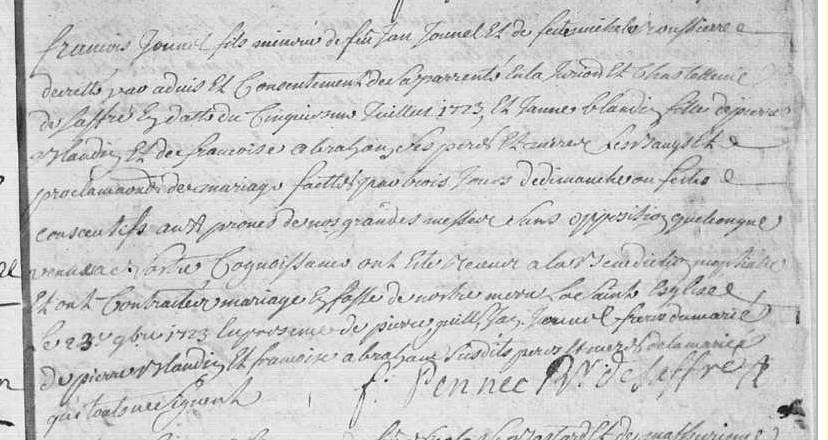 francois Jonnel fils mineur de feu Jan Jonnel Et de feue michele roussiere
decrette par advis Et Consentement de sa parrenté En la Juridon Et Chastellenie
de saffré En datte du Cinquiesme Juillet 1723 Et Janne blandin fille de pierre
blandin Et de francoise abraham ses pere Et mere les bangs Et
proclamaons de mariage faittes par trois Jours de dimanche ou festes
consecutifs aux prones de nos grandes messes sans opposition quelconque
venue a nostre Cognoissance ont Esté receus a la benediction nuptialle
Et ont Contracté mariage En fasse de nostre mere la sainte Esglise
le 23e 9bre 1723 En presence de pierre guill Jan Jonnel freres du marié
de pierre blandin Et francoise abraham susdits pere Et mere de la mariée
qui touts ne signent f. Pennec Vic. de Saffré